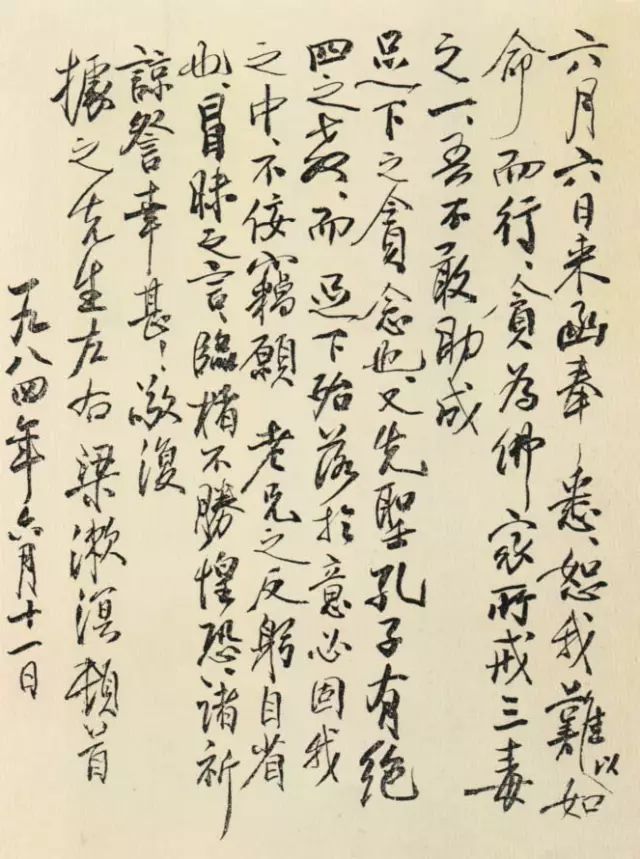 六月六日来函奉悉、恕我難以如
命而行、貪為佛家所戒三毒
之一、吾不敢助成
足下之貪念也、又先聖孔子有絶
四之教、而 足下殆落於意必固我
之中、不佞竊願 老兄之反躬自省
也、冒昧之言、臨楮不勝惶恐、諸祈
諒詧幸甚！敬復
據之先生左右 梁漱溟頓首
一九八四年六月十一日